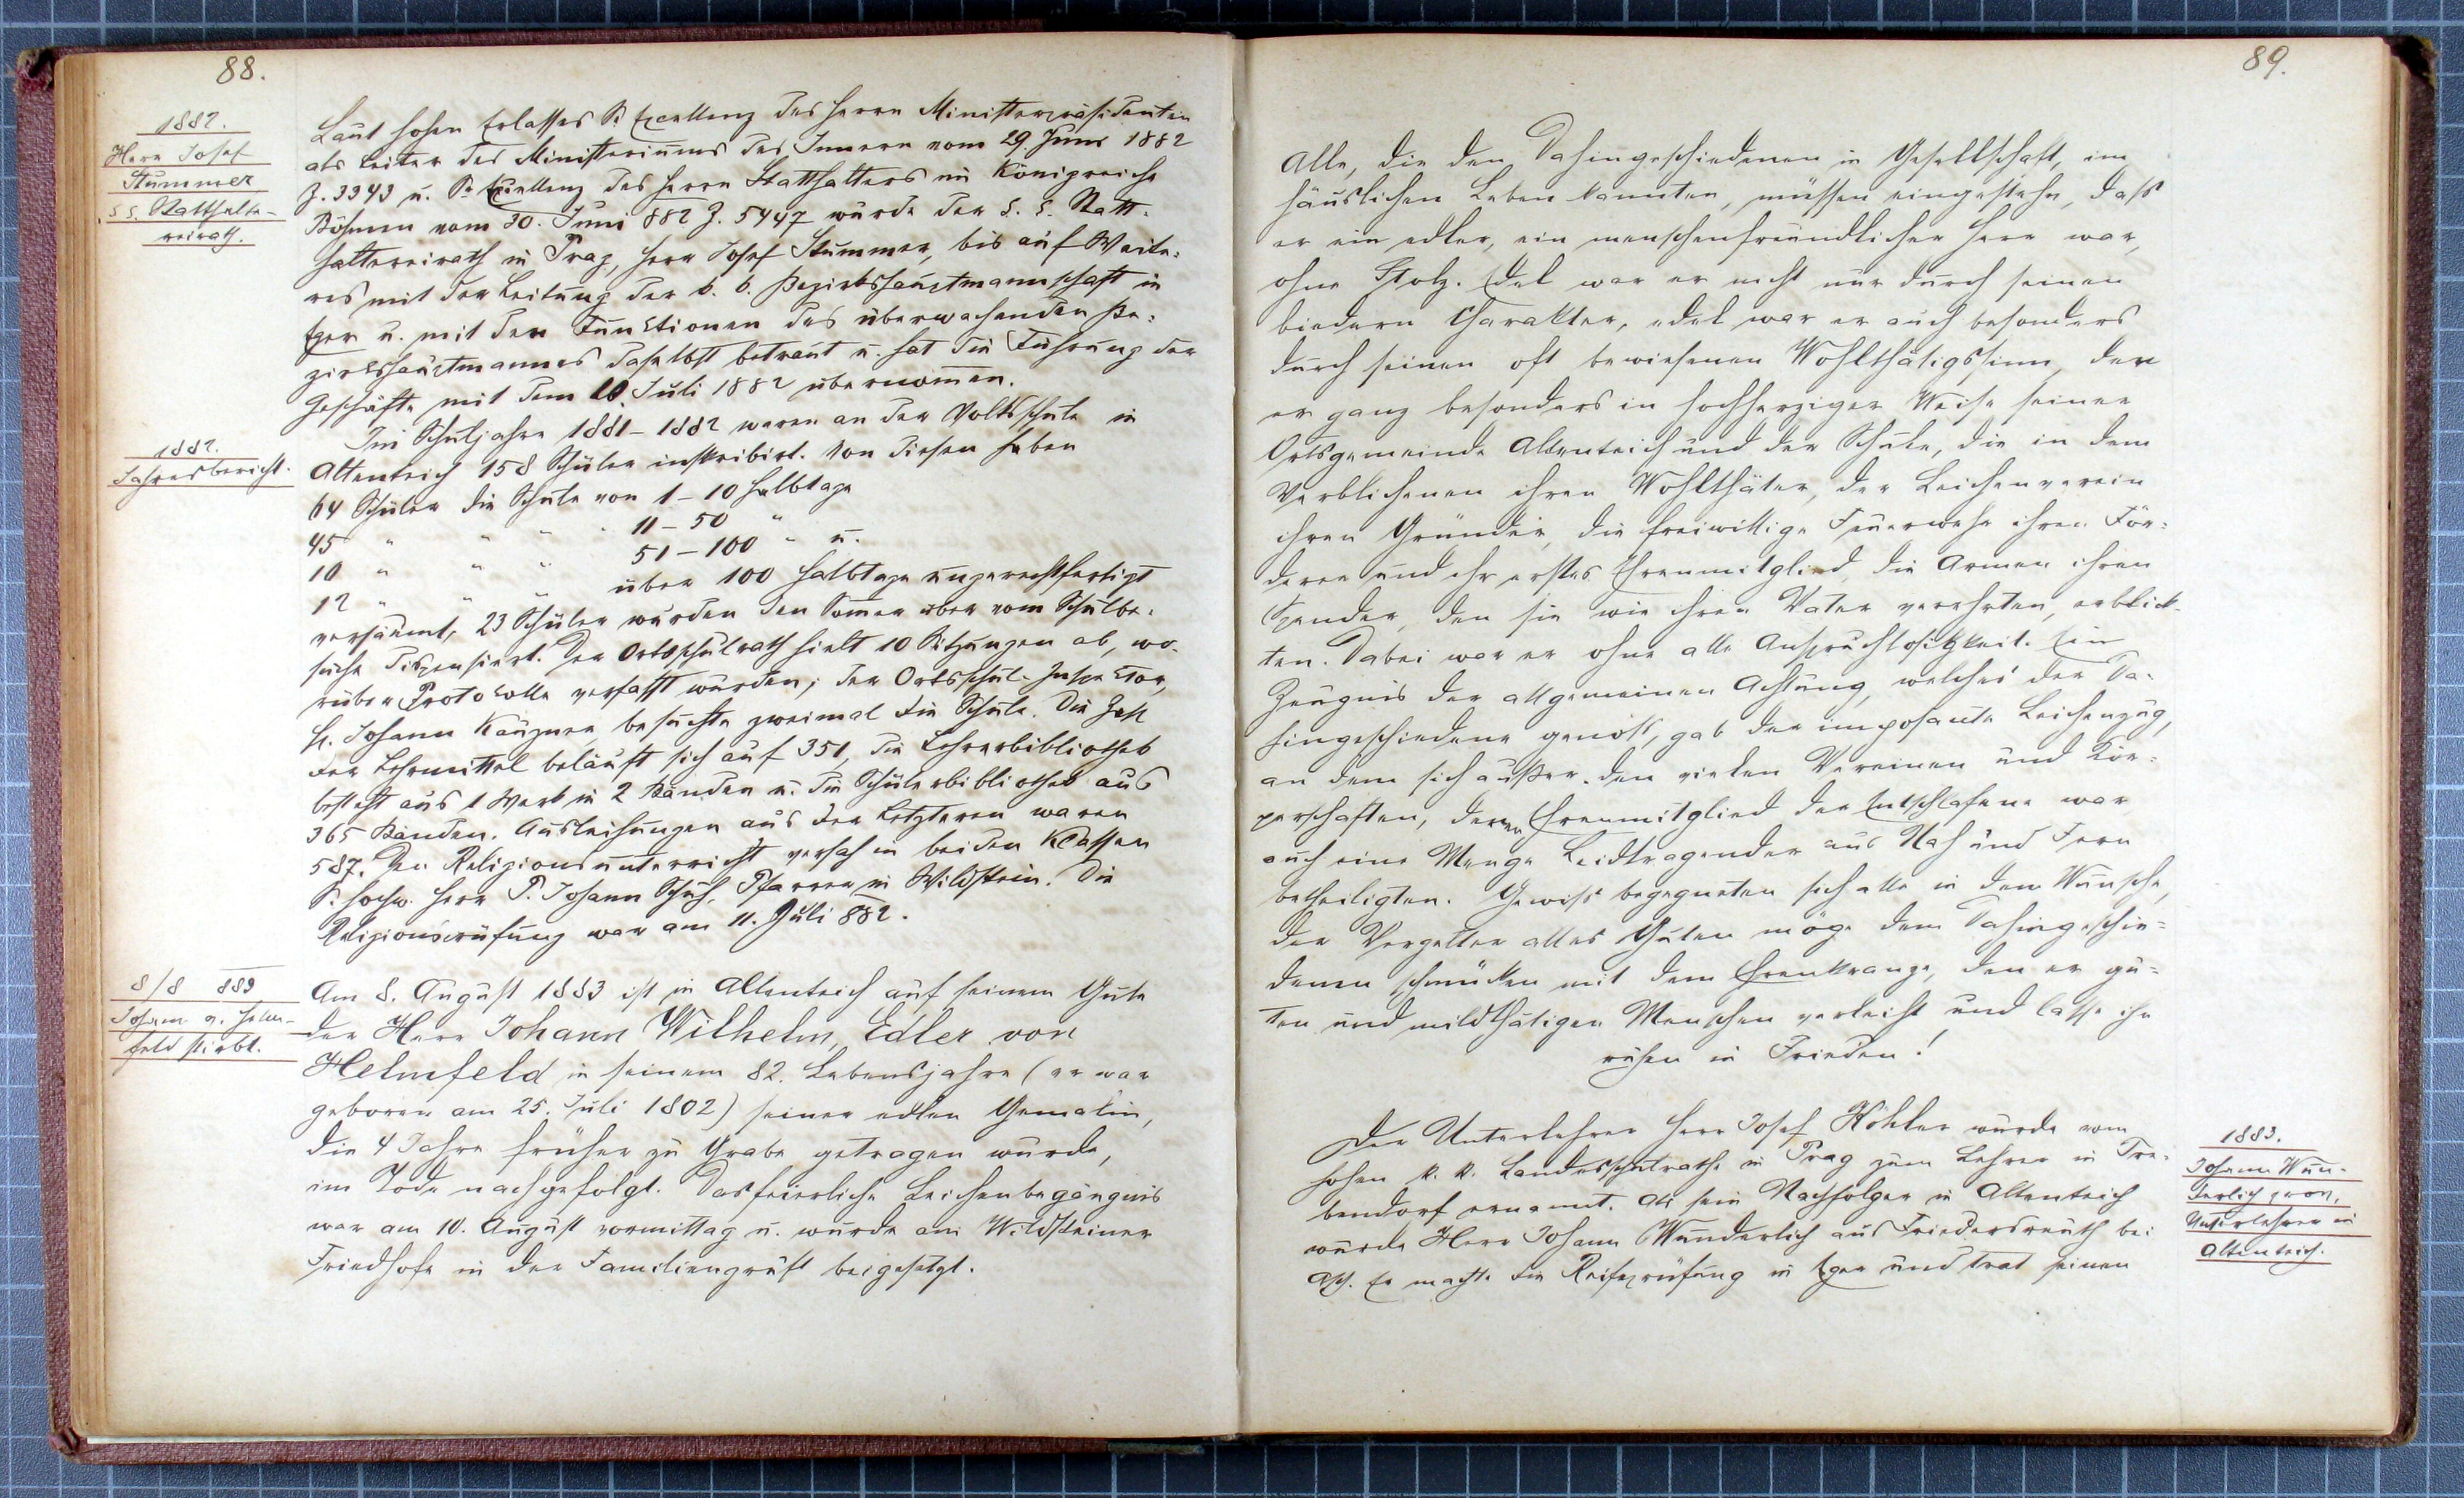 88.
1882.
Herr Josef
Stummer
k k. Statthalte-
reirath.
Laut hohen Erlasses Sr Excellenz des Herrn Ministerpräsidenten
als Leiter des Ministeriums des Innern vom 29. Juni 1882
Z. 3343 u. Sr Excellenz des Herrn Statthalters im Königreiche
Böhmen vom 30. Juni 882 Z. 5447 wurde der k. k. Statt-
haltereirath in Prag, Herr Josef Stummer, bis auf Weite-
res mit der Leitung der k. k. Bezirkshauptmannschaft in
Eger u. mit den Functionen des überwachenden Be-
zirkshauptmannes daselbst betraut u. hat die Führung der
Geschäfte mit dem 10. Juli 1882 übernomen.
1882.
Jahresbericht.
Im Schuljahre 1881-1882 waren an der Volksschule in
Altenteich 158 Schüler inskribirt. Von diesen haben
64 Schüler die Schule von 1-10 Halbtage
45 " " " " 11-50 "
10 " " " 51-100 " u.
12 " " " über 100 Halbtage ungerechtfertigt
versäumt, 23 Schüler wurden den Somer über vom Schulbe-
suche dispensiert. Der Ortsschulrath hielt 10 Sitzungen ab, wo-
rüber Protocolle verfasst wurden; der Ortsschul-Inspector,
H. Johann Käuzner besuchte zweimal die Schule. Die Zahl
der Lehrmittel beläuft sich auf 351, die Lehrerbibliothek
besteht aus 1 Werk in 2 Bänden u. die Schülerbibliothek aus
365 Bänden. Ausleihungen aus der Letzteren waren
587. Den Religionsunterricht versah in beiden Klassen
S. Hochw. Herr P. Johann Schuh, Pfarrer in Wildstein. Die
Religionsprüfung war am 11. Juli 882.
8/8 883
Johann v. Helm-
feld stirbt.
Am 8. August 1883 ist in Altenteich auf seinem Gute
der Herr Johann Wilhelm, Edler von
Helmfeld in seinem 82. Lebensjahre (er war
geboren am 25. Juli 1802) seiner edlen Gemalin,
die 4 Jahre früher zu Grabe getragen wurde,
im Tode nachgefolgt. Das feierliche Leichenbegängnis
war am 10. August vormittag u. wurde am Wildsteiner
Friedhofe in der Familiengruft beigesetzt.
89.
Alle, die den Dahingeschiedenen in Gesellschaft, im
häuslichen Leben kannten, müssen eingestehn, dass
er ein edler, ein menschenfreundlicher Herr war,
ohne Stolz. Edel war er nicht nur durch seinen
biedern Charakter, edel war er auch besonders
durch seinen oft bewiesenen Wohlthätigssinn, den
er ganz besonders in hochherziger Weise seiner
Ortsgemeinde Altenteich und der Schule, die in dem
Verblichenen ihren Wohlthäter, der Leichenverein
ihren Gründer, die freiwillige Feuerwehr ihren För-
derer und ihr erstes Ehrenmitglied, die Armen ihren
Spender, den sie wie ihren Vater verehrten, erblick-
ten. Dabei war er ohne alle Anspruchlosigkeit. Ein
Zeugnis der allgemeinen Achtung, welches der Da-
hingeschiedene genoß, gab der imposante Leichenzug,
an dem sich außer den vielen Vereinen und Kör-
perschaften, deren Ehrenmitglied der Entschlafene war
auch eine Menge Leidtragender aus Nah und Fern
betheiligten. Gewiß begegneten sich alle in dem Wunsche,
der Vergelter alles Guten möge dem Dahingeschie-
denen schmücken mit dem Ehrenkranze, den er gu-
ten und mildthätigen Menschen verleiht und lasse ihn
ruhen in Frieden!
Der Unterlehrer Herr Josef Köhler wurde vom
hohen k. k. Landesschulrathe in Prag zum Lehrer in Tre-
bendorf ernannt. Als sein Nachfolger in Altenteich
wurde Herr Johann Wunderlich aus Friedersreuth bei
Asch. Er machte die Reifeprüfung in Eger und trat seinen
1883.
Johann Wun-
derlich prov.
Unterlehrer in
Altenteich.